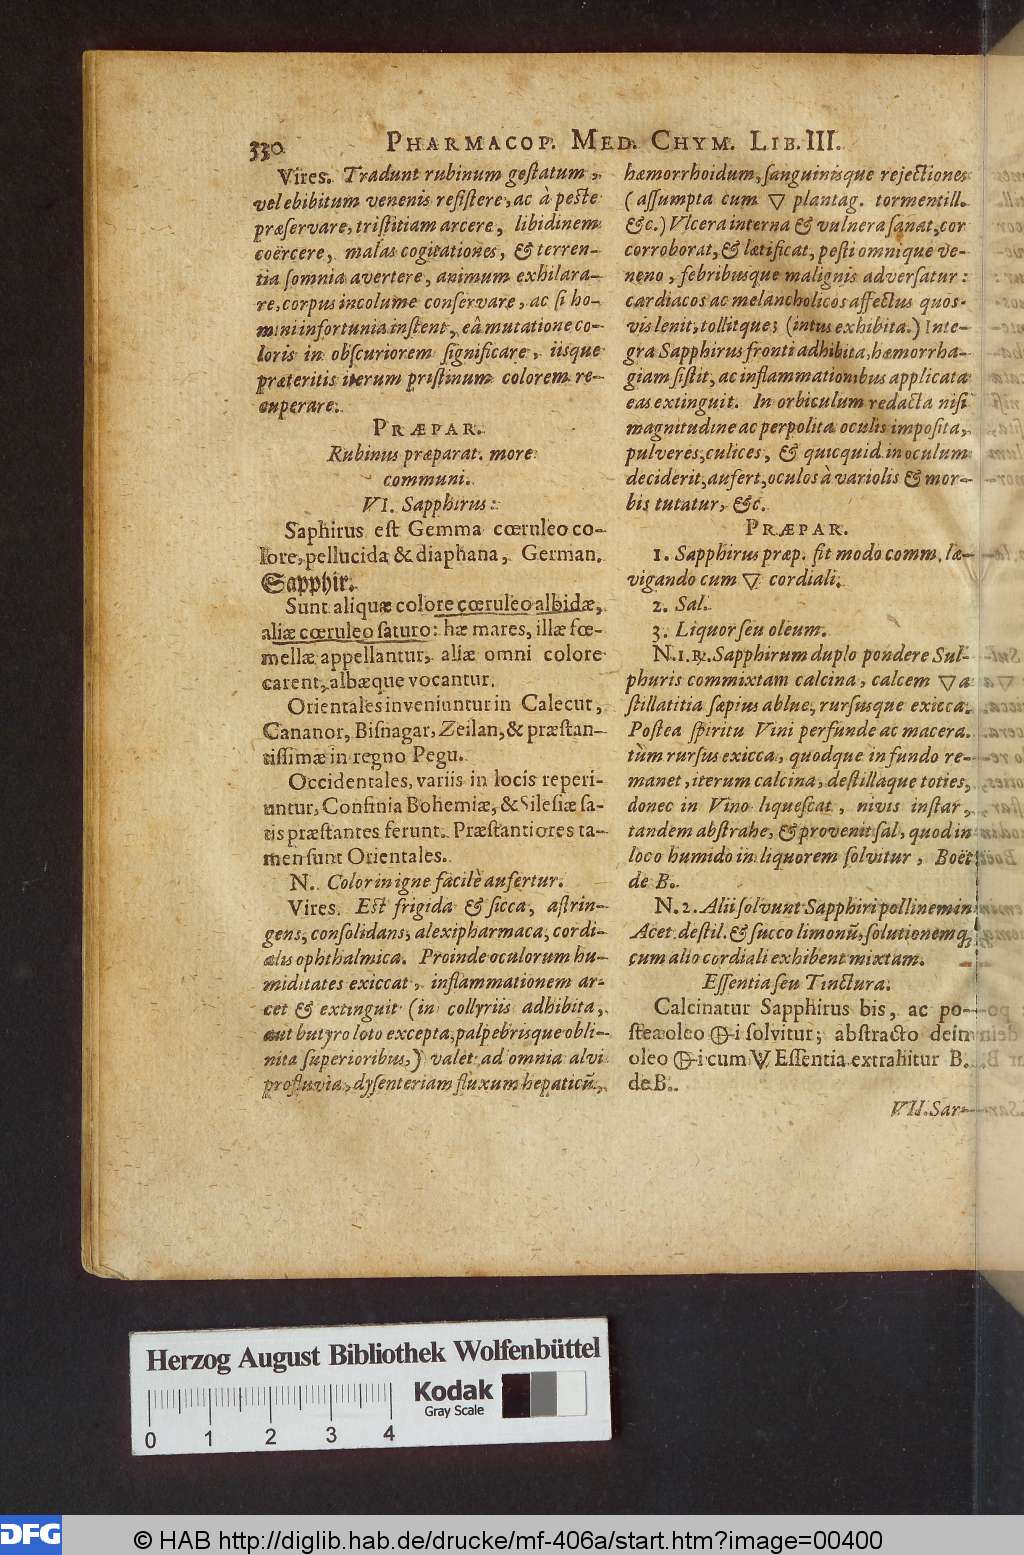 330 PHARMACOP. MED. CHYM. LIB. III.
Vires. Tradunt rubinum gestatum,
vel ebibitum venenis resistere, ac à peste
præservare, tristitiam arcere, libidinem
coërcere, malas cogitationes, & terren-
tia somnia avertere, animum exhilara-
re, corpus incolume conservare, ac si ho-
mini infortunia instent, eâ mutatione co-
loris in obscuriorem significare, iisque
præteritis iterum pristinum colorem re-
cuperare.
PRÆPAR.
Rubinus præparat. more
communi.
VI. Sapphirus:
Saphirus est Gemma cœruleo co-
lore, pellucida & diaphana, German.
Sapphir.
Sunt aliquæ colore cœruleo albidæ,
aliæ cœruleo saturo: hæ mares, illæ fœ-
mellæ appellantur, aliæ omni colore
carent, albæque vocantur.
Orientales inveniuntur in Calecut,
Cananor, Bisnagar, Zeilan, & præstan-
tissimæ in regno Pegu.
Occidentales, variis in locis reperi-
untur, Confinia Bohemiæ, & Silesiæ sa-
tis præstantes ferunt. Præstantiores ta-
men sunt Orientales.
N. Color in igne facilè aufertur.
Vires. Est frigida & sicca, astrin-
gens, consolidans, alexipharmaca, cordi-
alis ophthalmica. Proinde oculorum hu-
miditates exiccat, inflammationem ar-
cet & extinguit (in collyriis adhibita,
aut butyro loto excepta, palpebrisque obli-
nita superioribus,) valet ad omnia alvi
profluvia, dysenteriam fluxum hepaticū,
hæmorrhoidum, sanguinisque rejectiones
(assumpta cum 🜄 plantag. tormentill.
&c.) Ulcera interna & vulnera sanat, cor
corroborat, & lætificat, pesti omnique ve-
neno, febribusque malignis adversatur:
cardiacos ac melancholicos affectus quos-
vis lenit, tollitque; (intus exhibita.) Inte-
gra Sapphirus fronti adhibita, hæmorrha-
giam sistit, ac inflammationibus applicata
eas extinguit. In orbiculum redacta nisi
magnitudine ac perpolita oculis imposita,
pulveres, culices, & quicquid in oculum
deciderit, aufert, oculos à variolis & mor-
bis tutatur, &c.
PRÆPAR.
1. Sapphirus præp. fit modo comm. læ-
vigando cum 🜄 cordiali.
2. Sal.
3. Liquor seu oleum.
N. 1. ℞. Sapphirum duplo pondere Sul-
phuris commixtam calcina, calcem 🜄 a
stillatitia sæpius ablue, rursusque exicca.
Postea spiritu Vini perfunde ac macera.
tùm rursus exicca, quodque in fundo re-
manet, iterum calcina, destillaque toties,
donec in Vino liquescat, nivis instar,
tandem abstrahe, & provenit sal, quod in
loco humido in liquorem solvitur, Boët
de B.
N. 2. Alii solvunt Sapphiri pollinem in
Acet. destil. & succo limonū, solutionemq;
cum alio cordiali exhibent mixtam.
Essentia seu Tinctura.
Calcinatur Sapphirus bis, ac po-
stea oleo 🜕i solvitur; abstracto dein
oleo 🜕i cum V Essentia extrahitur B.
de B.
VII. Sar-
Herzog August Bibliothek Wolfenbüttel
Kodak
Gray Scale
0 1 2 3 4
DFG © HAB http://diglib.hab.de/drucke/mf-406a/start.htm?image=00400